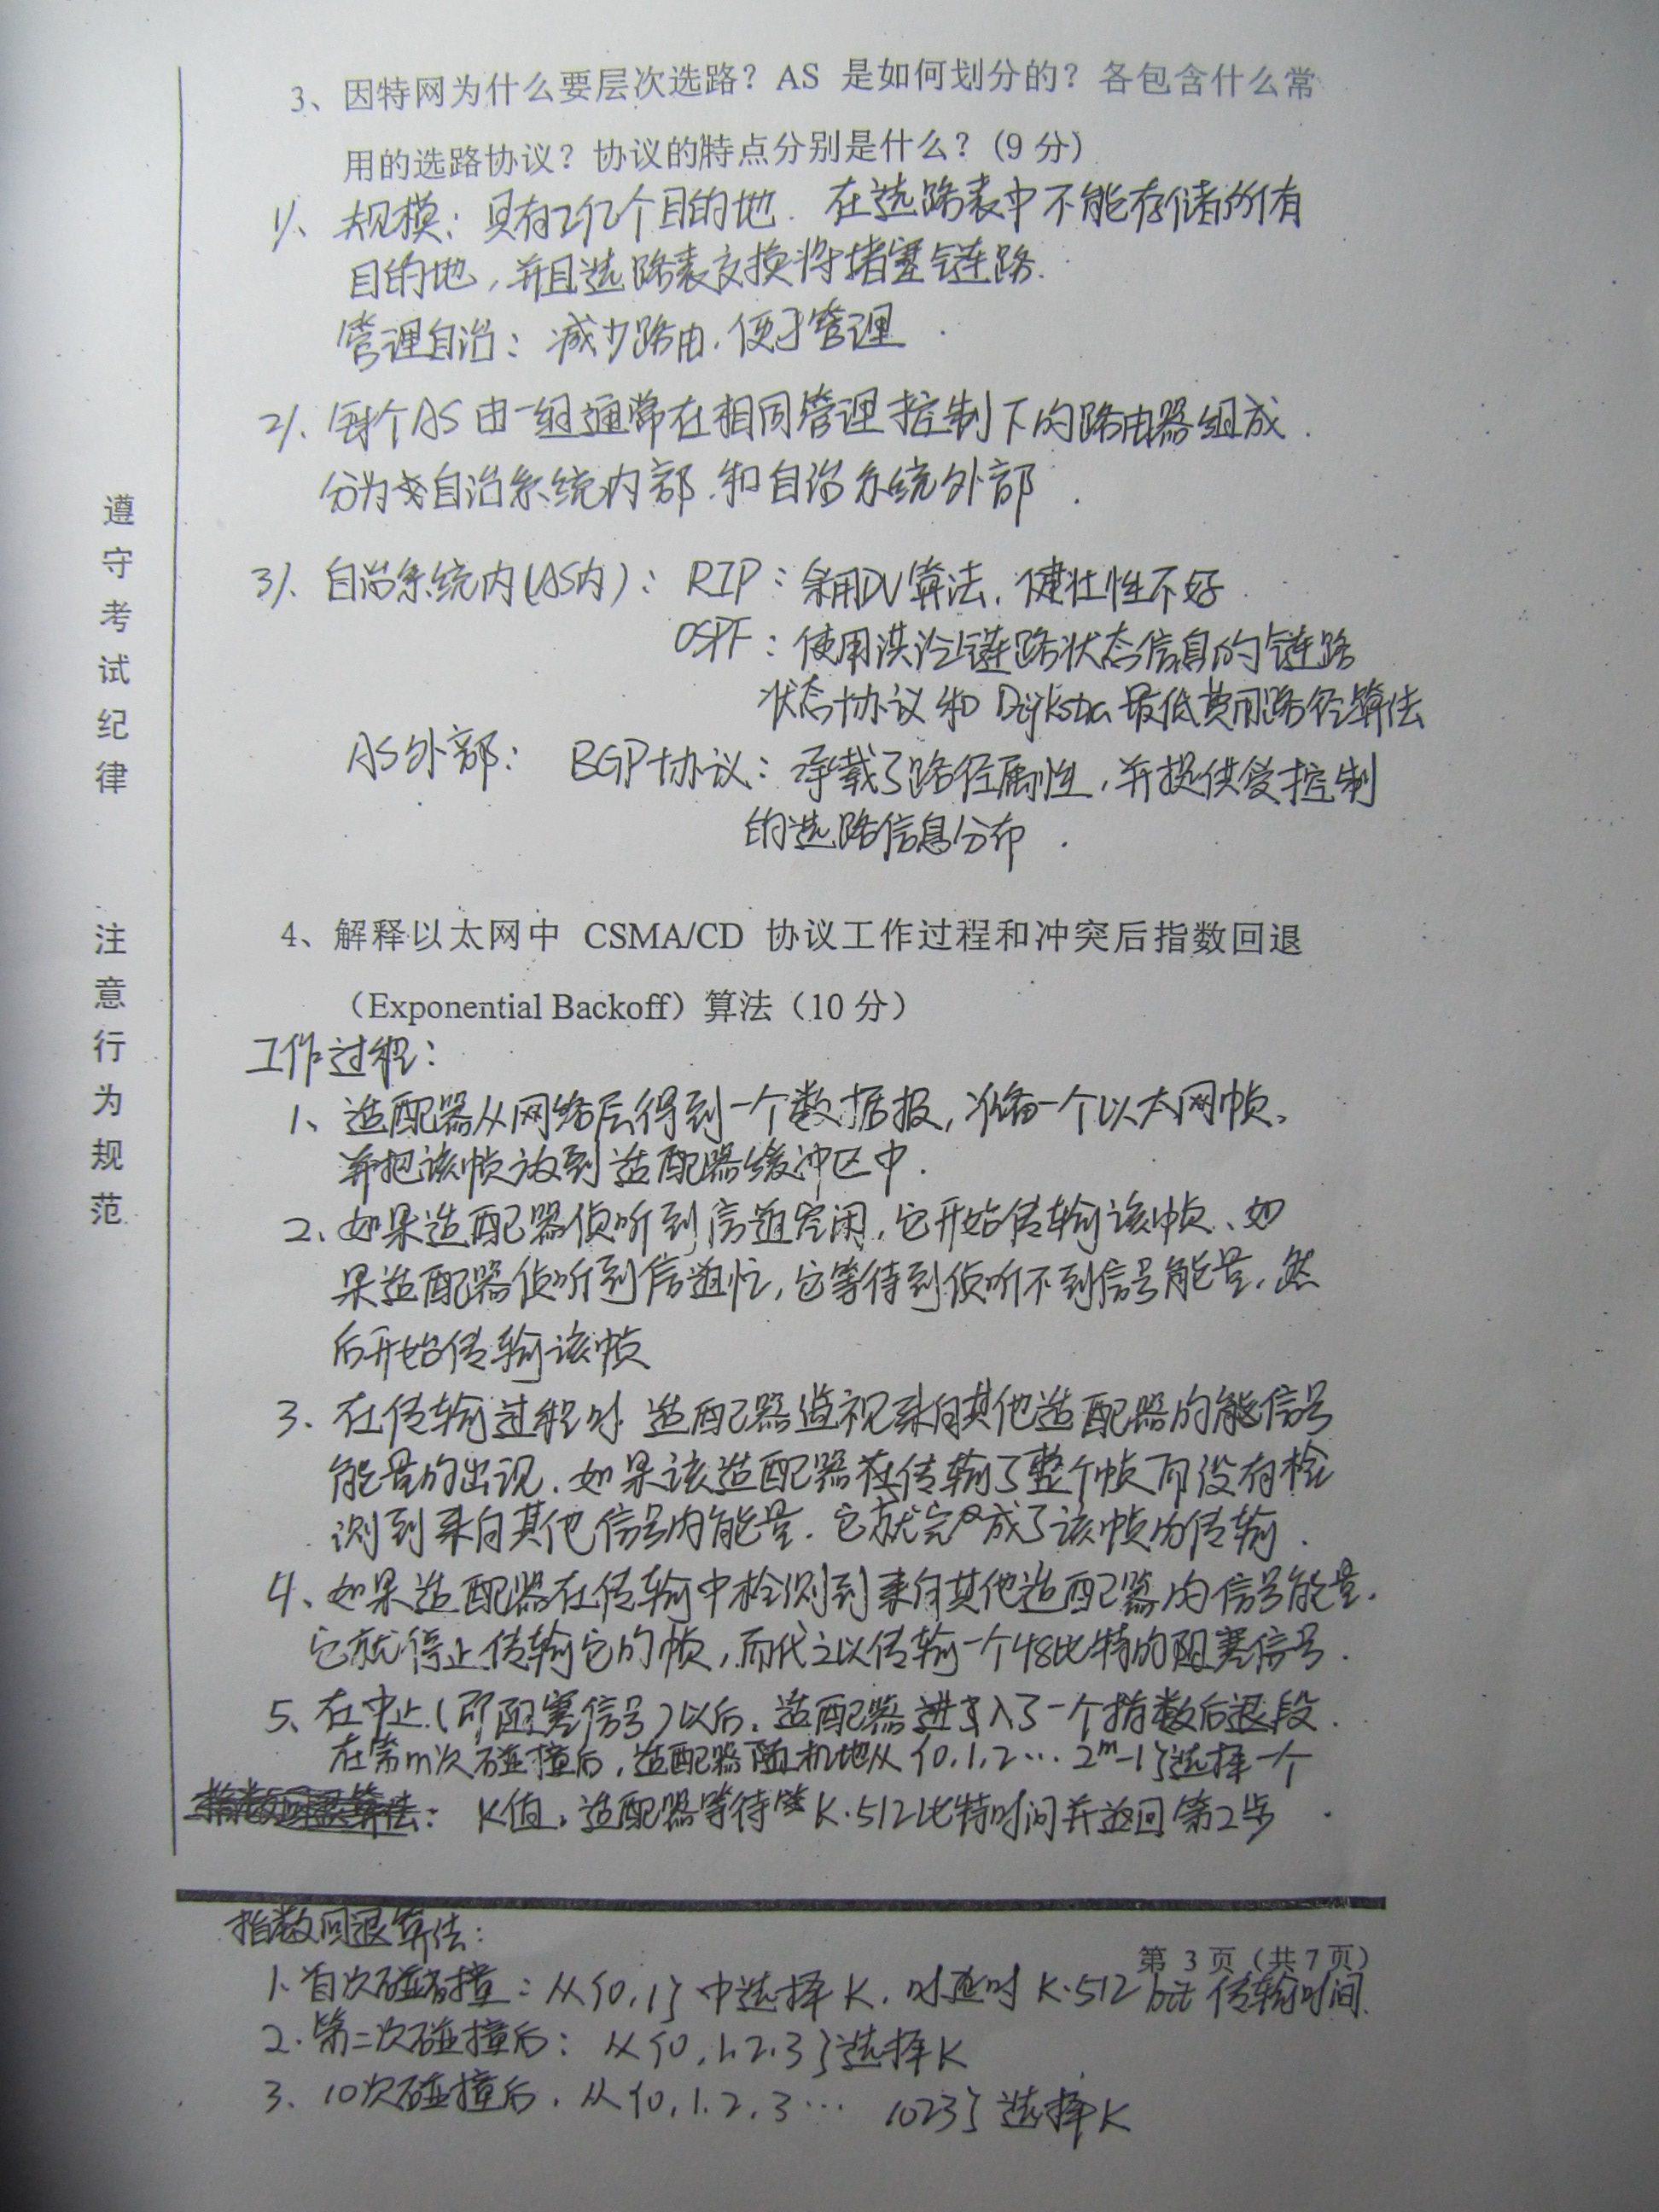 3、因特网为什么要层次选路？AS 是如何划分的？各包含什么常
用的选路协议？协议的特点分别是什么？(9 分)
1)、规模：具有2亿个目的地. 在选路表中不能存储所有
目的地，并且选路表交换将堵塞链路.
管理自治：减少路由，便于管理.
2)、每个AS由一组通常在相同管理控制下的路由器组成.
分为自治系统内部.和自治系统外部.
3)、自治系统内(AS内)：RIP：采用DV算法，健壮性不好
OSPF：使用洪泛链路状态信息的链路
状态协议和Dijkstra最低费用路径算法
AS外部：BGP协议：承载了路径属性，并提供受控制
的选路信息分布.
4、解释以太网中 CSMA/CD 协议工作过程和冲突后指数回退
（Exponential Backoff）算法（10 分）
工作过程：
1、适配器从网络层得到一个数据报，准备一个以太网帧、
并把该帧放到适配器缓冲区中.
2、如果适配器侦听到信道空闲，它开始传输该帧、如
果适配器侦听到信道忙，它等待到侦听不到信号能量，然
后开始传输该帧
3、在传输过程时 适配器监视来自其他适配器的能信号
能量的出现. 如果该适配器在传输了整个帧而没有检
测到来自其他信号的能量. 它就完成了该帧的传输.
4、如果适配器在传输中检测到来自其他适配器的信号能量.
它就停止传输它的帧，而代之以传输一个48比特的阻塞信号.
5、在中止(即阻塞信号)以后，适配器进入了一个指数后退段.
在第m次碰撞后，适配器随机地从{0,1,2…2^m-1}选择一个
K值，适配器等待 K·512比特时间并返回第2步.
指数回退算法：
第 3 页（共 7 页）
1. 首次碰撞：从{0,1}中选择K. 时延时 K·512 bit 传输时间.
2. 第二次碰撞后：从{0,1,2,3}选择K
3、10次碰撞后，从{0,1,2,3… 1023}选择K
遵守考试纪律 注意行为规范